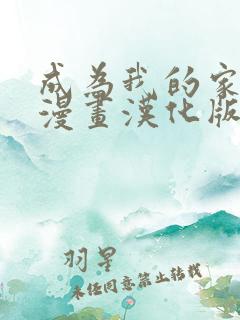 成為我的家
漫畫漢化版
羽星
未经同意禁止转载